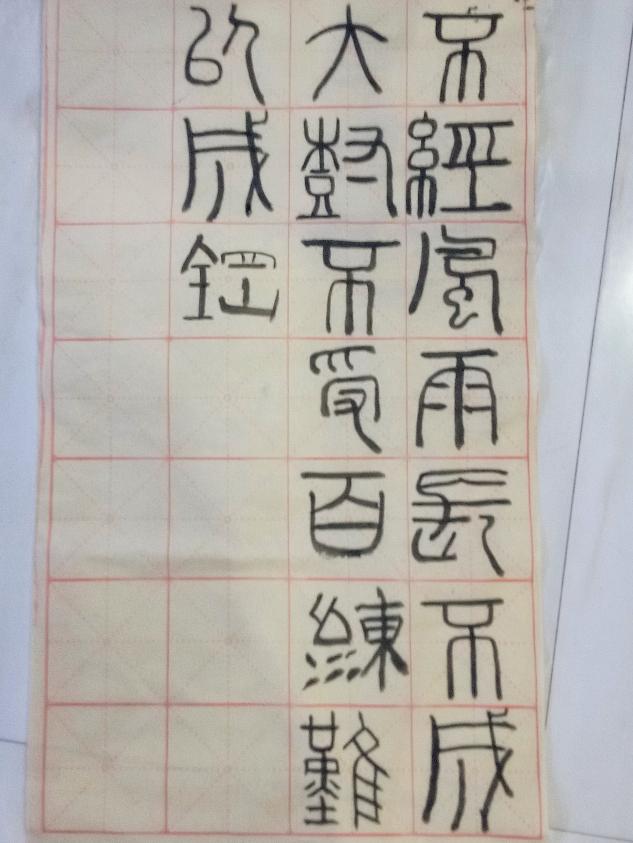 不經風雨長不成
大樹不受百練難
以成鋼